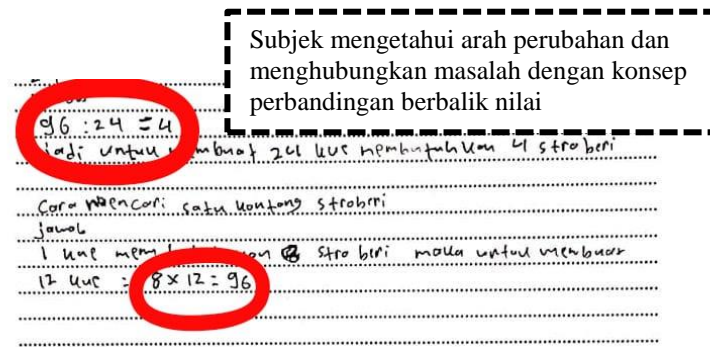 Subjek mengetahui arah perubahan dan
menghubungkan masalah dengan konsep
perbandingan berbalik nilai
96 : 24 = 4
Jadi untuk membuat 24 kue membutuhkan 4 stroberi
Cara mencari satu kantong stroberi
jawab
1 kue stroberi maka untuk membuat
12 kue = 8 x 12 = 96